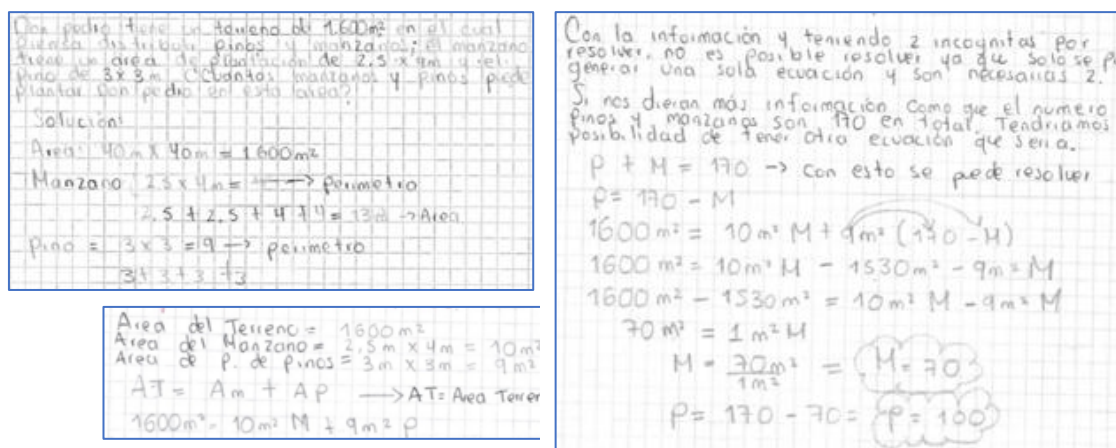 Don pedro tiene un terreno de 1.600m² en el cual
piensa distribuir pinos y manzanos; el manzano
tiene un área de plantación de 2.5 x 4m y el
pino de 3x3m, ¿Cuántos manzanos y pinos puede
plantar Don pedro en esta área?
Solución:
Area: 40m x 40m = 1600m²
Manzano 2.5 x 4m = → perimetro
2.5 + 2.5 + 4 + 4 = 13 → Area
Pino = 3 x 3 = 9 → perimetro
3 + 3 + 3 + 3
Area del Terreno = 1600m²
Area del Manzano = 2,5m x 4m = 10m²
Area de P. de pinos = 3m x 3m = 9m²
AT = Am + AP → AT = Area Terren
1600m² = 10m² M + 9m² P
Con la información y teniendo 2 incognitas por
resolver, no es posible resolver ya que solo se p
generar una sola ecuación y son necesarias 2.
Si nos dieran más información como que el numero
pinos y manzanos son 170 en total. Tendriamos
posibilidad de tener otra ecuación que seria.
P + M = 170 → con esto se pede resolver
P = 170 - M
1600m² = 10m² M + 9m² (170 - M)
1600m² = 10m² M - 1530m² - 9m² M
1600m² - 1530m² = 10m² M - 9m² M
70m² = 1m² M
M = 70m²/1m² = M = 70
P = 170 - 70 = P = 100